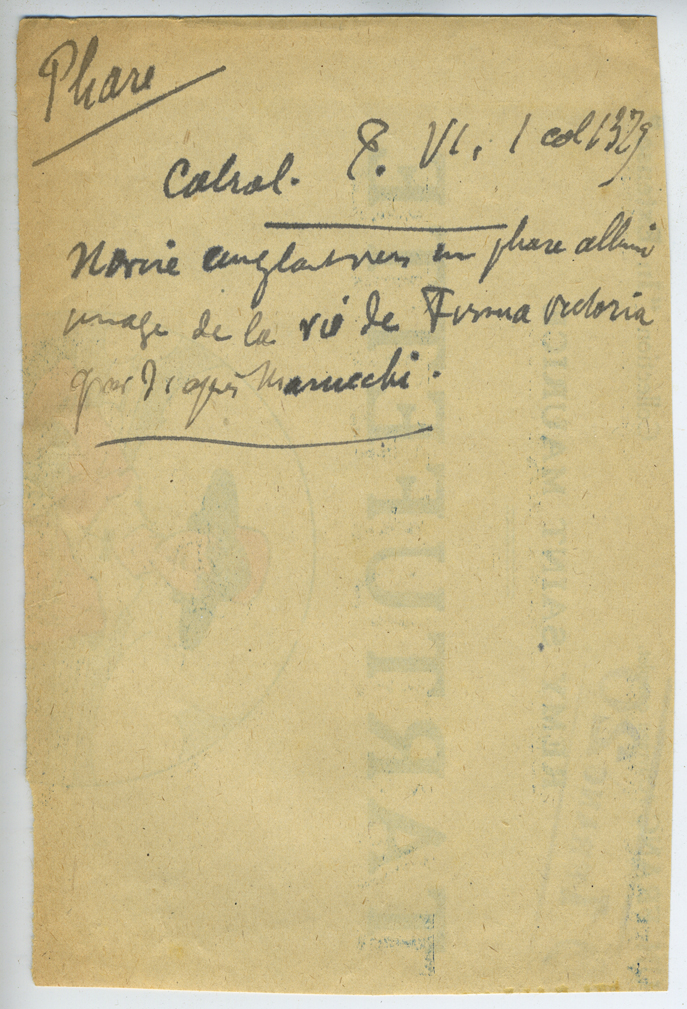 Phare
Cabrol. T. VI, 1 col 1329
Navire cinglant vers un phare allumé
image de la vie de Firma Victoria
d'après Marucchi.